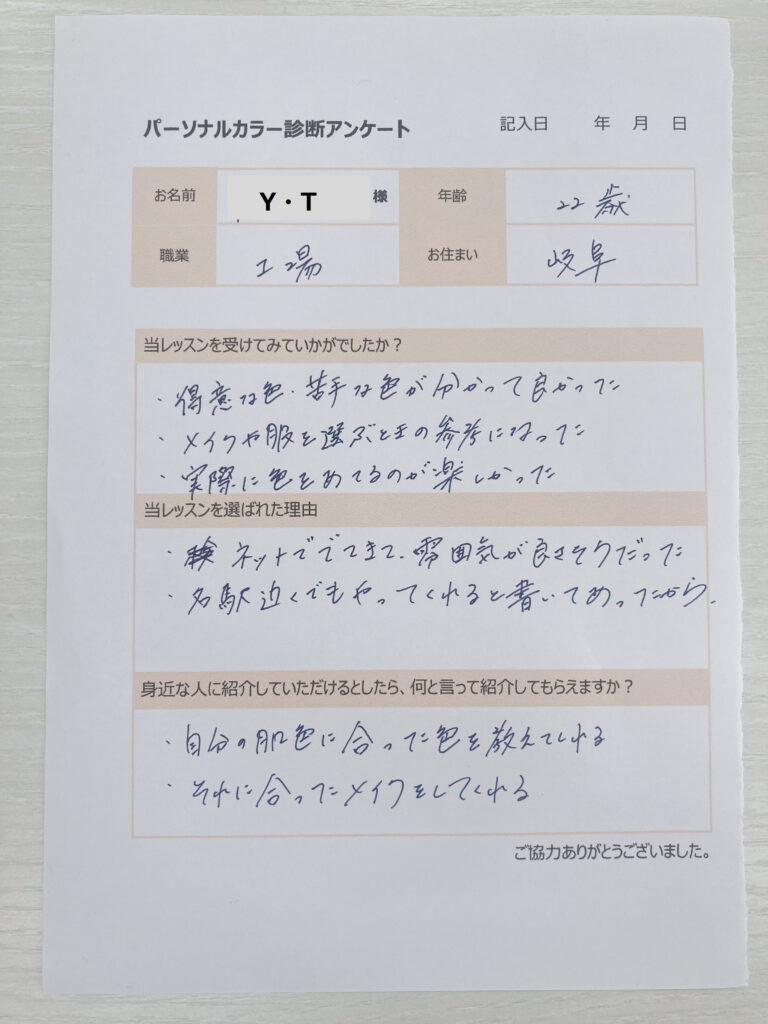 パーソナルカラー診断アンケート 記入日 年 月 日
お名前 Y・T 様 年齢 22歳
職業 工場 お住まい 岐阜
当レッスンを受けてみていかがでしたか？
・得意な色・苦手な色が分かって良かった
・メイクや服を選ぶときの参考になった
・実際に色をあてるのが楽しかった
当レッスンを選ばれた理由
・ネットででてきて、雰囲気が良さそうだった
・名駅近くでもやってくれると書いてあったから。
身近な人に紹介していただけるとしたら、何と言って紹介してもらえますか？
・自分の肌色に合った色を教えてくれる
・それに合ったメイクをしてくれる
ご協力ありがとうございました。